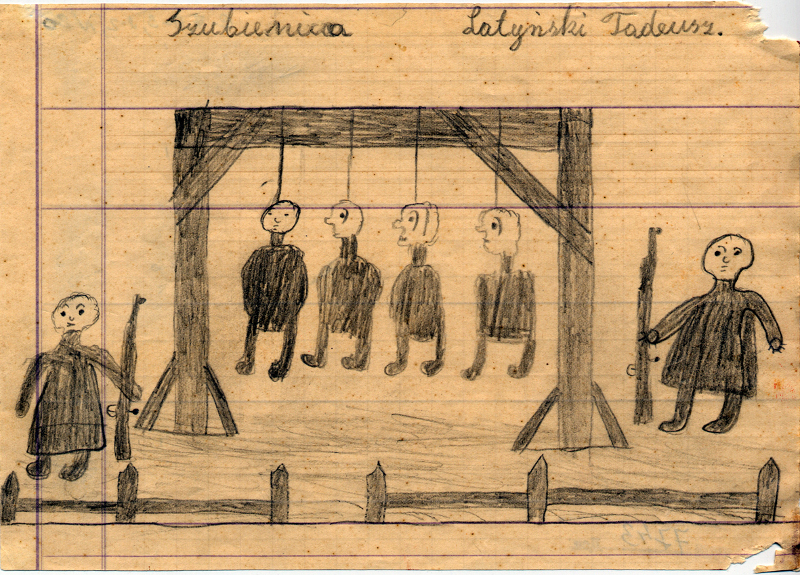 Szubienica Latyński Tadeusz.